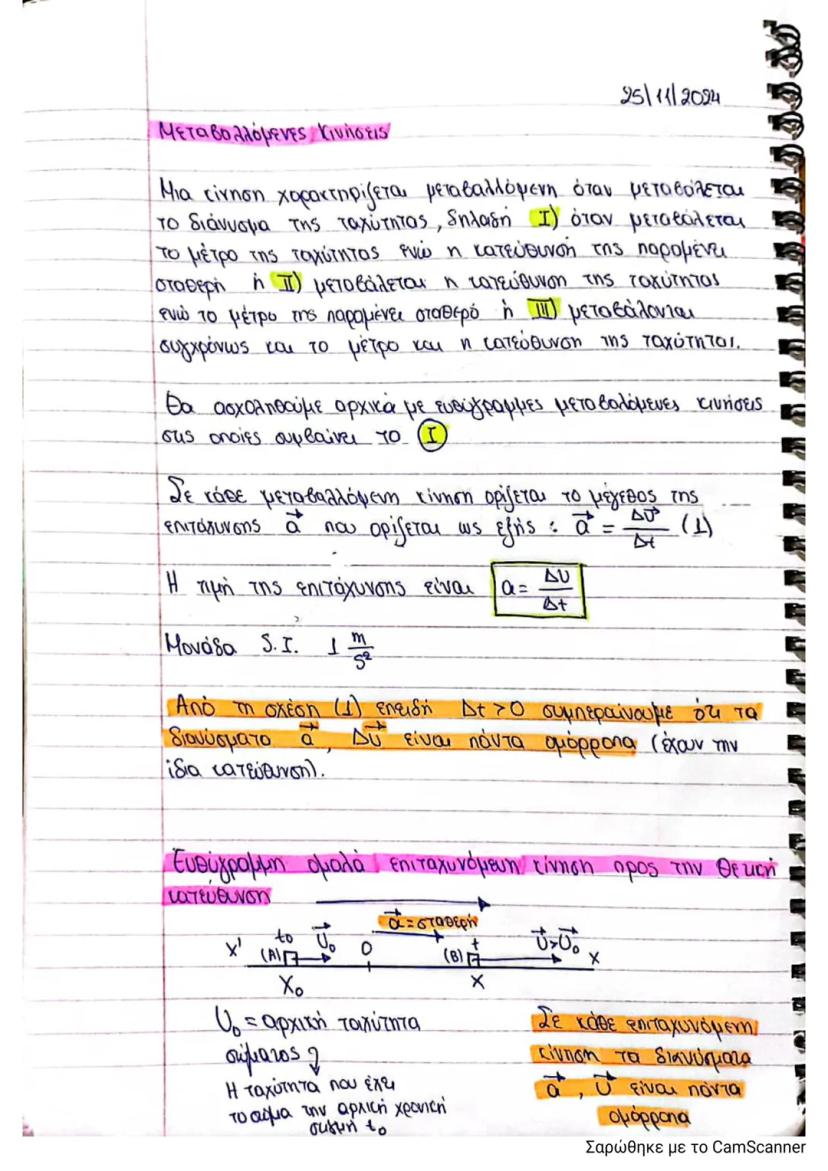 25/11/2024
Μεταβαλλόμενες κινήσεις
Μια κίνηση χαρακτηρίζεται μεταβαλλόμενη όταν μεταβάλεται
το διάνυσμα της ταχύτητας, δηλαδή I) όταν μεταβάλεται
το μέτρο της ταχύτητας ενώ η κατεύθυνσή της παραμένει
σταθερή ή II) μεταβάλεται η κατεύθυνση της ταχύτητας
ενώ το μέτρο της παραμένει σταθερό ή III) μεταβάλονται
συγχρόνως και το μέτρο και η κατεύθυνση της ταχύτητας.
Θα ασχοληθούμε αρχικά με ευθύγραμμες μεταβαλόμενες κινήσεις
στις οποίες συμβαίνει το I
Σε κάθε μεταβαλλόμενη κίνηση ορίζεται το μέγεθος της
επιτάχυνσης a⃗ που ορίζεται ως εξής : a⃗ = Δυ⃗/Δt (1)
Η τιμή της επιτάχυνσης είναι a = Δυ/Δt
Μονάδα S.I. 1 m/s²
Από τη σχέση (1) επειδή Δt > 0 συμπεραίνουμε ότι τα
διανύσματα a⃗, Δυ⃗ είναι πάντα ομόρροπα (έχουν την
ίδια κατεύθυνση).
Ευθύγραμμη ομαλά επιταχυνόμενη κίνηση προς την θετική
κατεύθυνση
a⃗ = σταθερή
x' (A) t₀ υ⃗₀ 0 (B) t υ⃗>υ⃗₀ x
x₀ x
υ₀ = αρχική ταχύτητα
σώματος
Η ταχύτητα που έχει
το σώμα την αρχική χρονική
στιγμή t₀
Σε κάθε επιταχυνόμενη
κίνηση τα διανύσματα
a⃗, υ⃗ είναι πάντα
ομόρροπα
Σαρώθηκε με το CamScanner